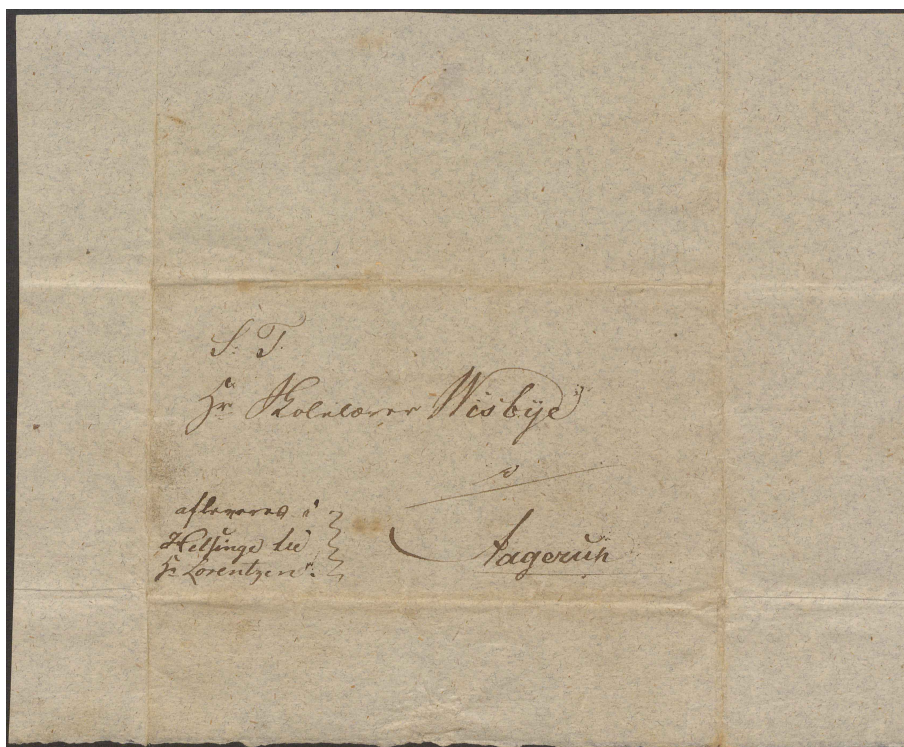 S. T.
Hr Skolelærer Wisbye
i
Aagerup
afleveres i
Helsinge til
Hr Lorentzen.